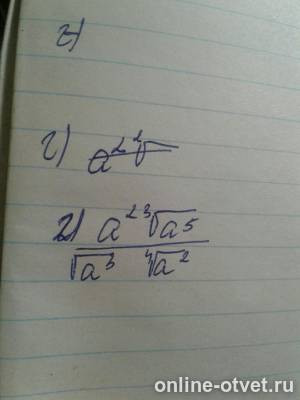 г)
г) a²²√
г) a² ³√a⁵
√a³ ⁴√a²
online-otvet.ru